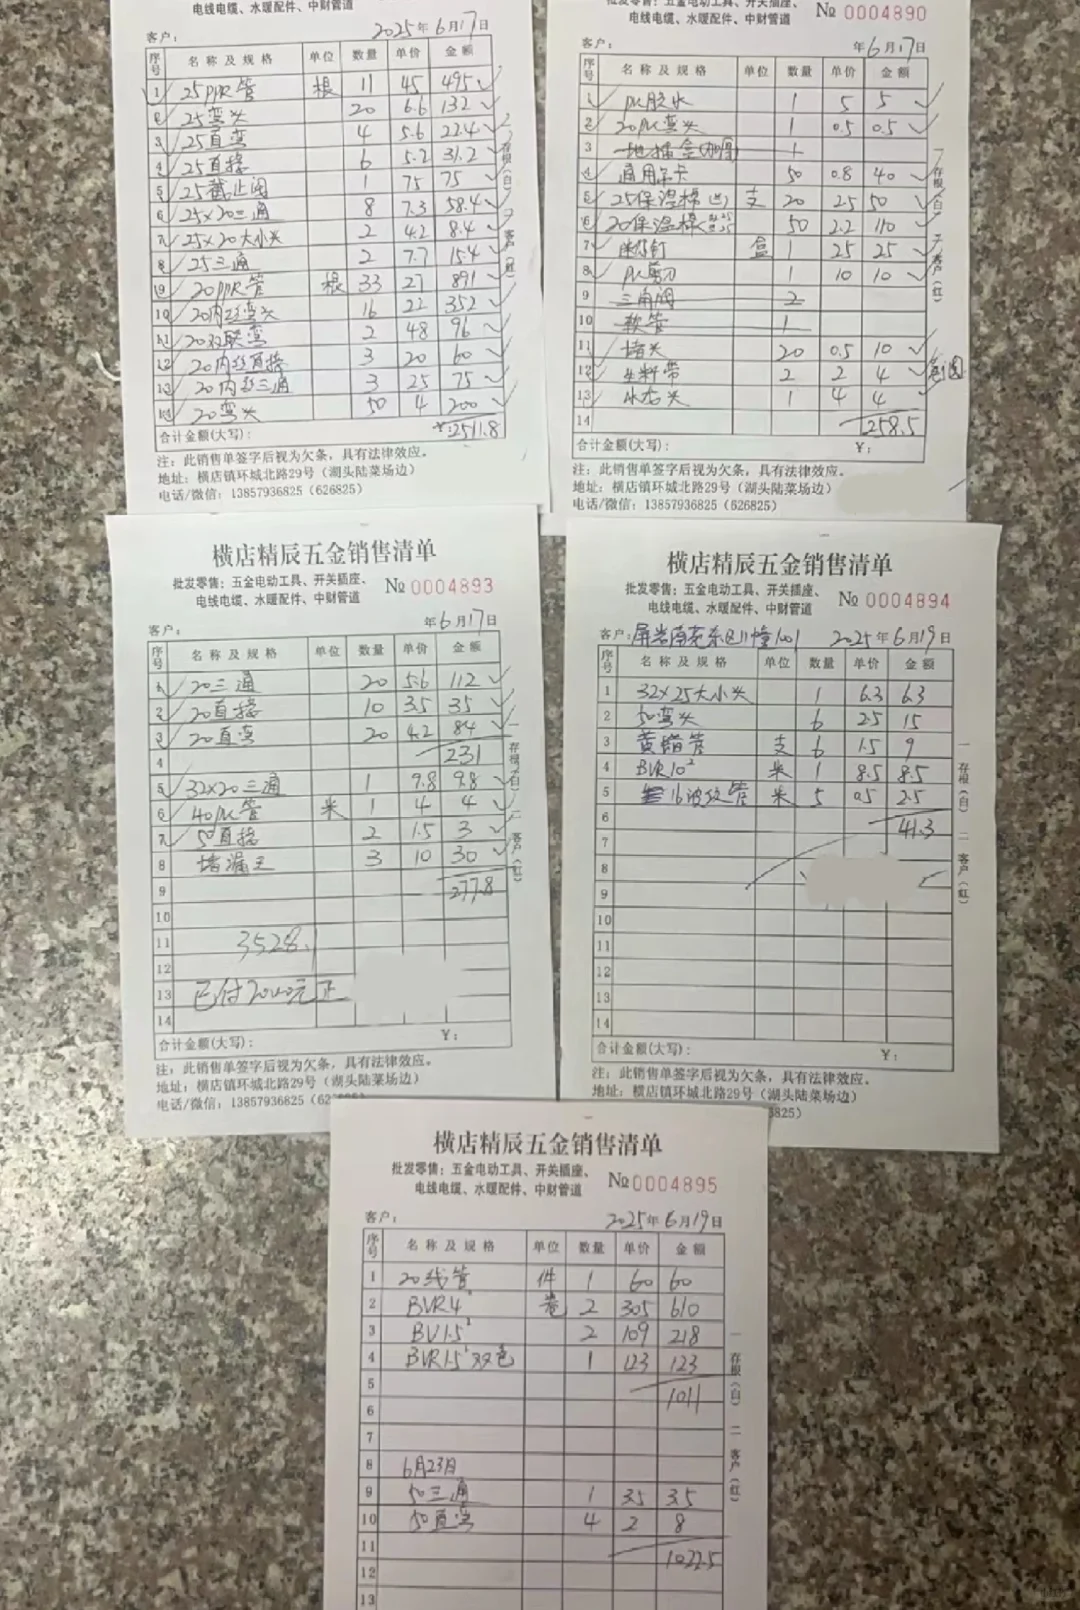 电线电缆、水暖配件、中财管道
客户： 2025年6月17日
序号 名称及规格 单位 数量 单价 金额
1 25PPR管 根 11 45 495
2 25弯头 20 6.6 132
3 25直弯 4 5.6 22.4
4 25直接 6 5.2 31.2
5 25截止阀 1 75 75
6 25×20三通 8 7.3 58.4
7 25×20大小头 2 4.2 8.4
8 25三通 2 7.7 15.4
9 20PPR管 根 33 27 891
10 20内丝弯头 16 22 352
11 20双联弯 2 48 96
12 20内丝直接 3 20 60
13 20内丝三通 3 25 75
14 20弯头 50 4 200
合计金额(大写)： ¥2511.8
注：此销售单签字后视为欠条，具有法律效应。
地址：横店镇环城北路29号（湖头陆菜场边）
电话/微信：13857936825（626825）
存根(白) 二 客户(红)
批发零售：五金电动工具、开关插座、
电线电缆、水暖配件、中财管道 № 0004890
客户： 年6月17日
序号 名称及规格 单位 数量 单价 金额
1 PVC胶水 1 5 5
2 20PVC弯头 1 0.5 0.5
3 地插盒 1
4 通用吊卡 50 0.8 40
5 25保温棉 支 20 25 50
6 20保温棉 50 2.2 110
7 盒 1 25 25
8 PVC剪刀 1 10 10
9 三角阀 2
10 软管 1
11 堵头 20 0.5 10
12 生料带 2 2 4
13 1 4 4
14 258.5
合计金额(大写)： ¥：
注：此销售单签字后视为欠条，具有法律效应。
地址：横店镇环城北路29号（湖头陆菜场边）
电话/微信：13857936825（626825）
一 存根(白) 二 客户(红)
横店精辰五金销售清单
批发零售：五金电动工具、开关插座、
电线电缆、水暖配件、中财管道 № 0004893
客户： 年6月17日
序号 名称及规格 单位 数量 单价 金额
1 20三通 20 5.6 112
2 20直接 10 3.5 35
3 20直弯 20 4.2 84
4 231
5 32×20三通 1 9.8 9.8
6 40PVC管 米 1 4 4
7 50直接 2 1.5 3
8 堵漏王 3 10 30
9 277.8
10
11 3528.1
12
13 已付2000元正
14
合计金额(大写)： ¥：
注：此销售单签字后视为欠条，具有法律效应。
地址：横店镇环城北路29号（湖头陆菜场边）
电话/微信：13857936825（62
一 存根(白) 二 客户(红)
横店精辰五金销售清单
批发零售：五金电动工具、开关插座、
电线电缆、水暖配件、中财管道 № 0004894
客户：屏岩南苑东区11幢1001 2025年6月19日
序号 名称及规格 单位 数量 单价 金额
1 32×25大小头 1 6.3 6.3
2 50弯头 6 2.5 15
3 黄蜡管 支 6 1.5 9
4 BVR10² 米 1 8.5 8.5
5 16波纹管 米 5 0.5 2.5
6 41.3
7
8
9
10
11
12
13
14
合计金额(大写)： ¥：
注：此销售单签字后视为欠条，具有法律效应。
地址：横店镇环城北路29号（湖头陆菜场边）
6825）
一 存根(白) 二 客户(红)
横店精辰五金销售清单
批发零售：五金电动工具、开关插座、
电线电缆、水暖配件、中财管道 №0004895
客户： 2025年6月19日
序号 名称及规格 单位 数量 单价 金额
1 20线管 件 1 60 60
2 BVR4² 卷 2 305 610
3 BV1.5² 2 109 218
4 BVR1.5²双色 1 123 123
5 1011
6
7
8 6月23日
9 50三通 1 3.5 3.5
10 50直弯 4 2 8
11 1022.5
12
13
一 存根(白) 二 客户(红)